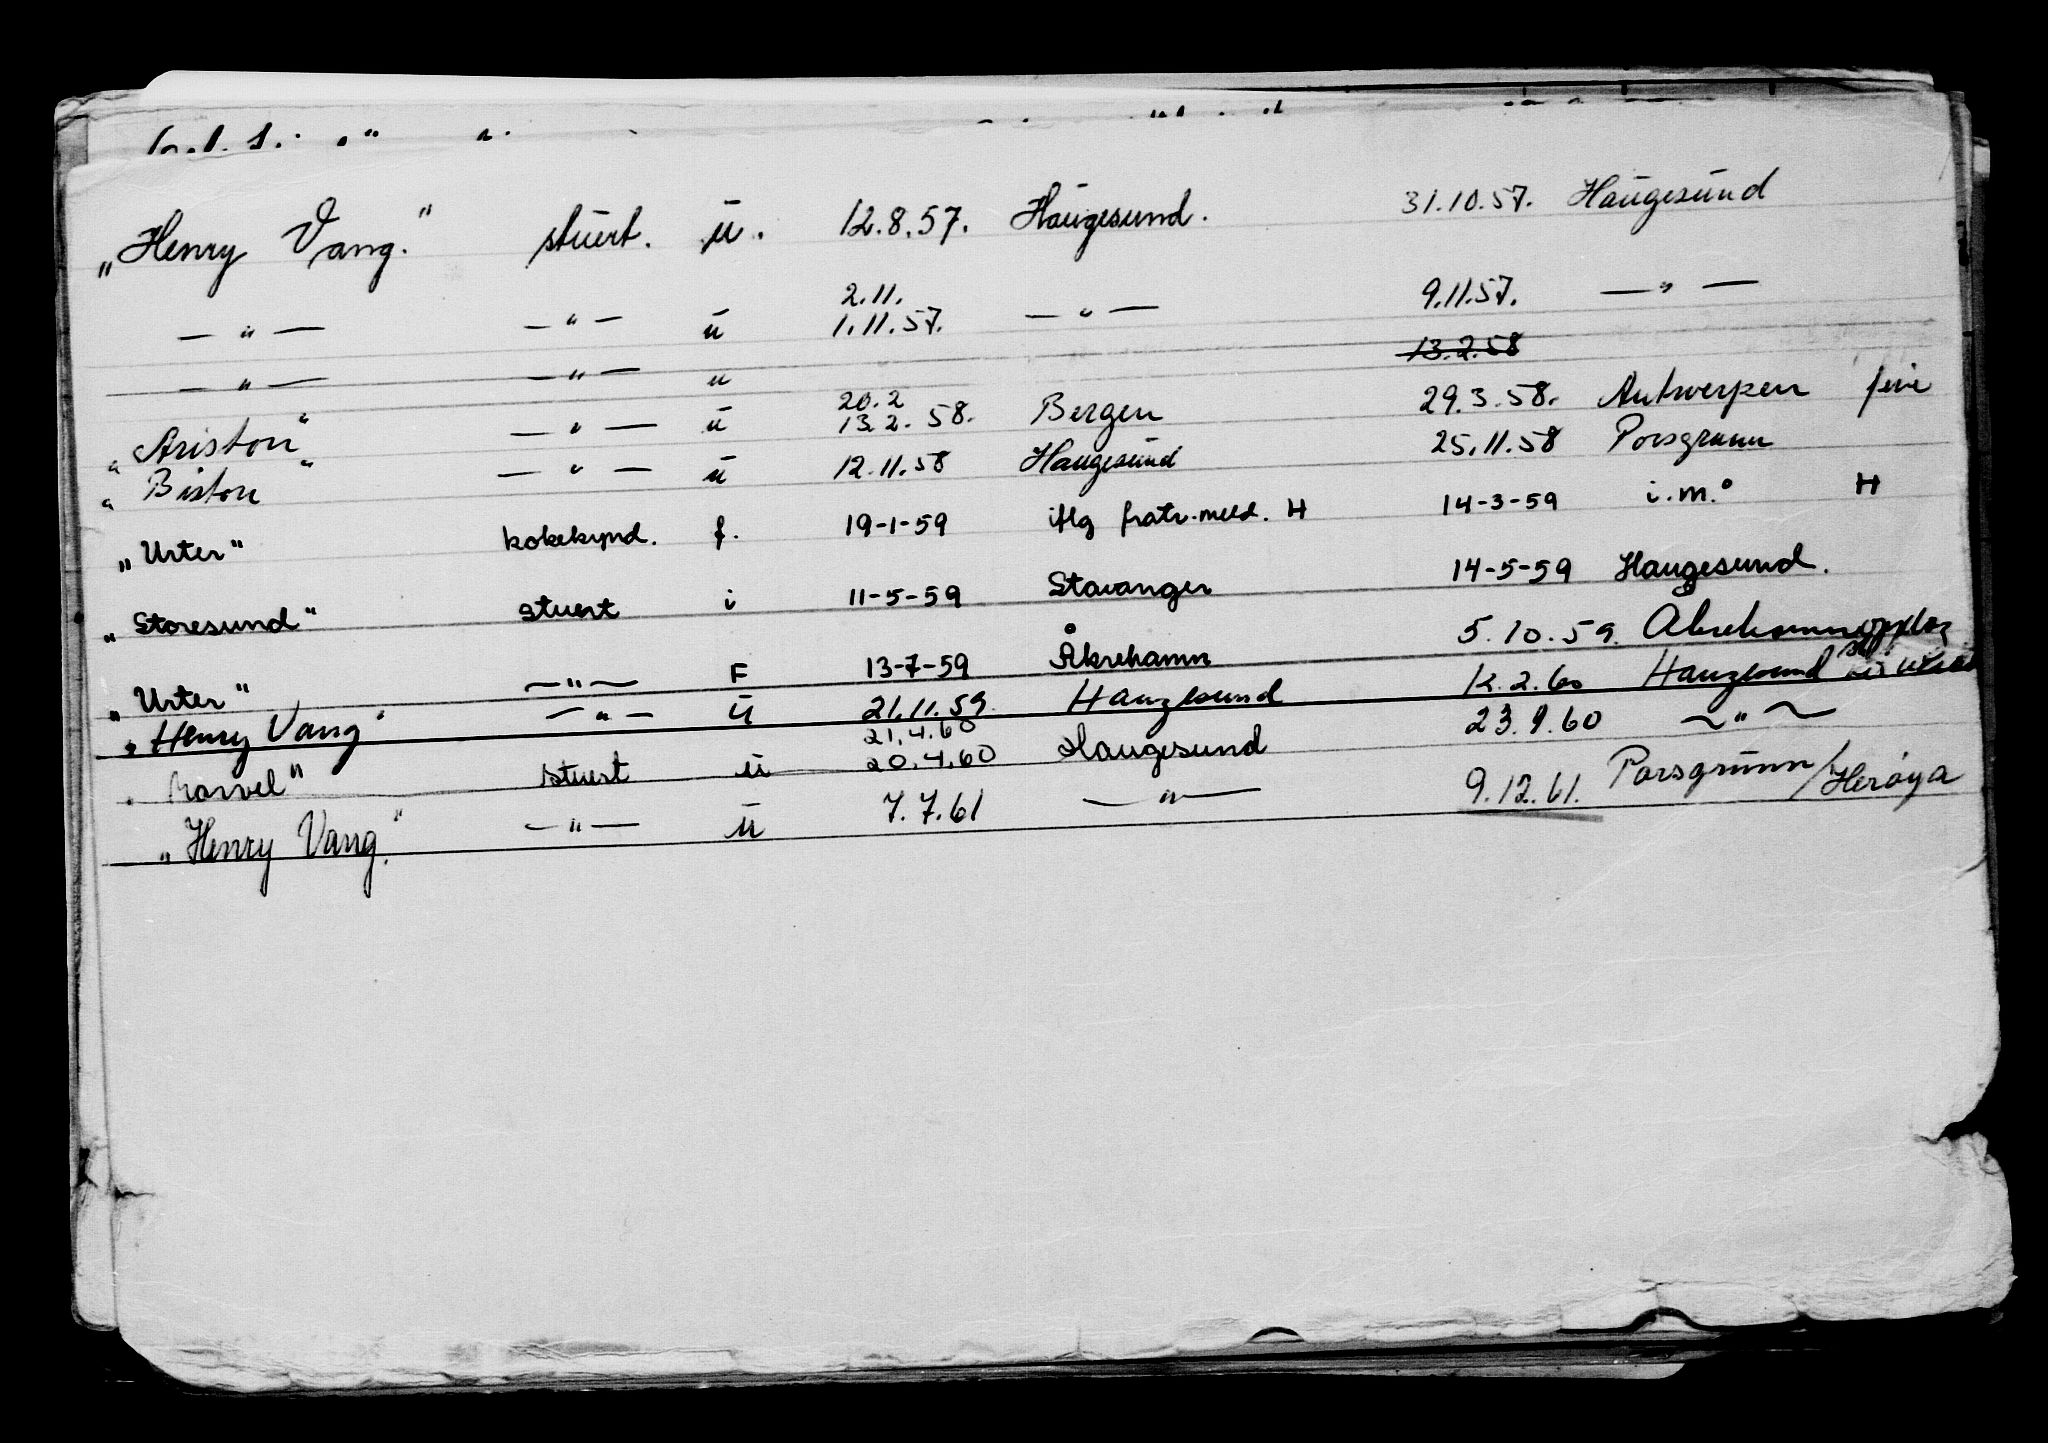 „Henry Vang." stuert. u. 12.8.57. Haugesund. 31.10.57. Haugesund
— " — — " — u 2.11. 1.11.57. — " — 9.11.57. — " —
— " — — " — u 13.2.58
„Ariston" — " — u 20.2 13.2.58. Bergen 29.3.58. Antwerpen
„Biston" — " — u 12.11.58 Haugesund 25.11.58 Porsgrunn
„Urter" kokekynd. f. 19-1-59 iflg fratr.meld. H 14-3-59 i.m. H
„Storesund" stuert i 11-5-59 Stavanger 14-5-59 Haugesund.
„Urter" — " — F 13-7-59 Åkrehamn 5.10.59. Akrehamn
„Henry Vang" — " — u 21.11.59. Haugesund 2.60 Haugesund
stuert u 21.4.60 20.4.60 Haugesund 23.9.60 — " —
„Henry Vang." — " — u 7.7.61 — " — 9.12.61. Porsgrunn/Herøya